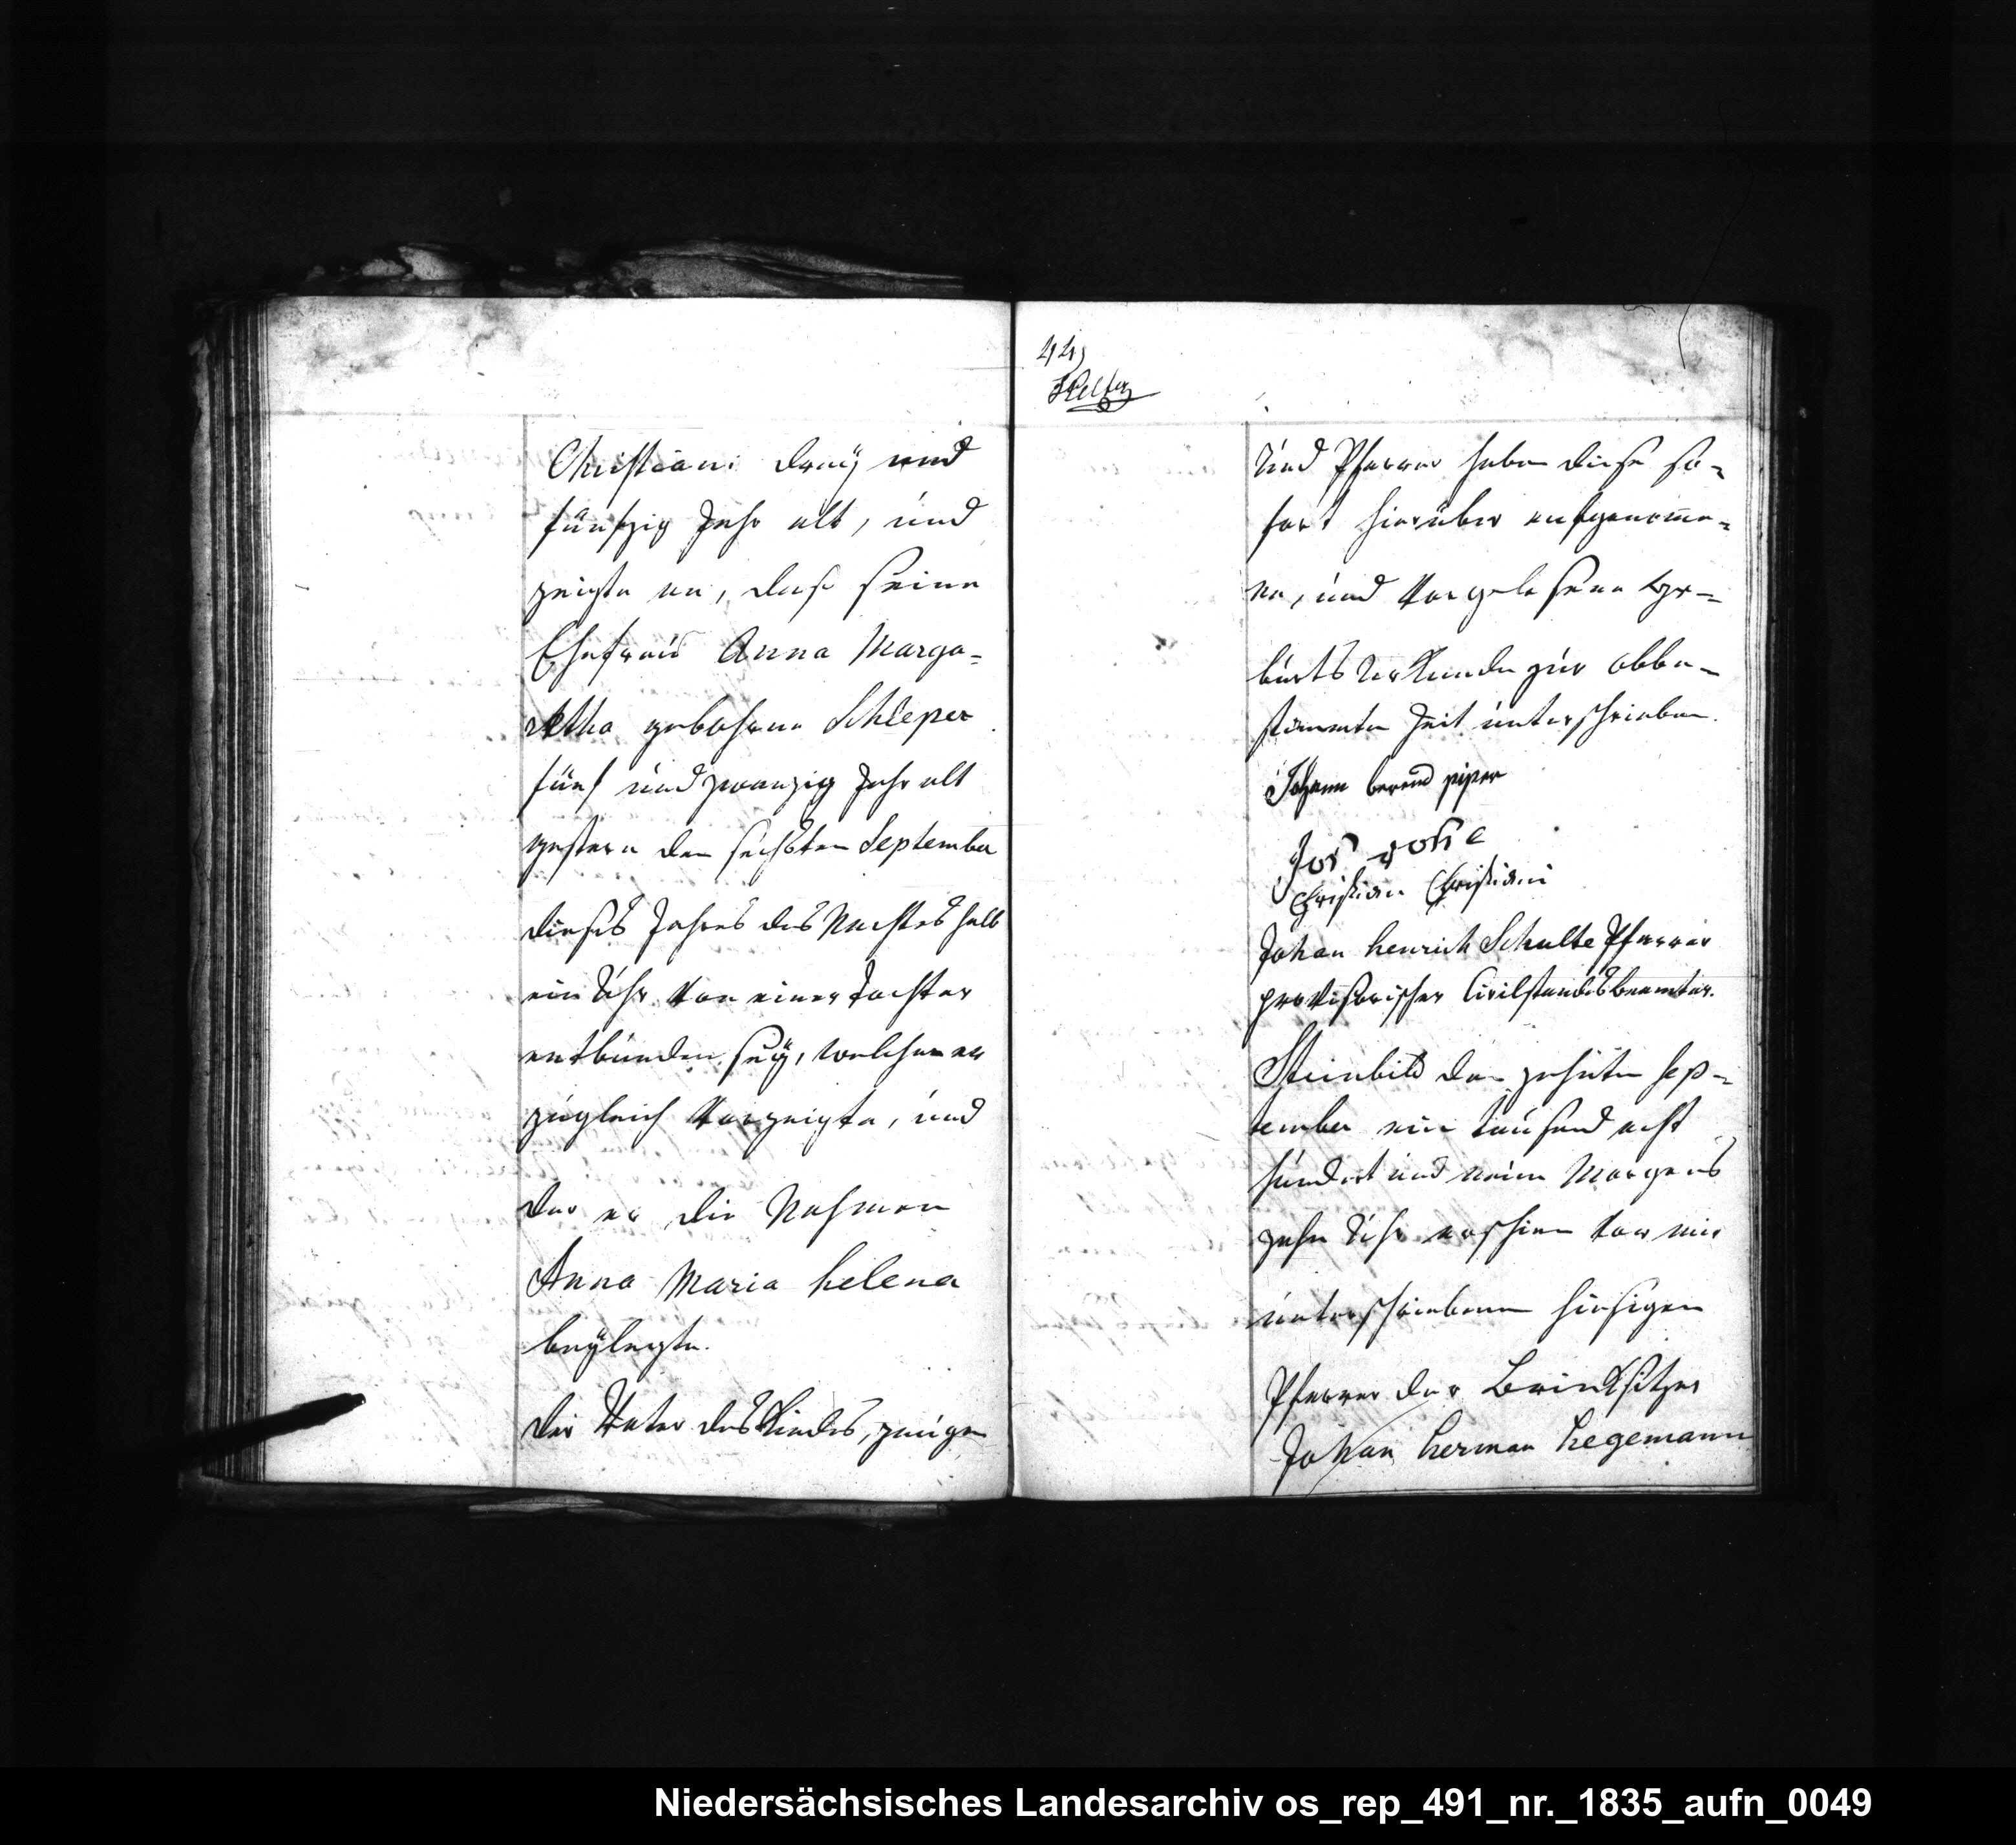 Christiani dreÿ und
fünfzig Jahr alt, und
zeigte an, daß seine
Ehefrau Anna Marga=
retha gebohrne Schleper
fünf und zwanzig Jahr alt
gestern den sechsten September
dieses Jahres des Nachtes halb
ein Uhr von einer Tochter
entbunden seÿ, welche er
zugleich vorzeigte, und
der er die Nahmen
Anna Maria helena
beÿlegte.
Der Vater des Kindes, zeugen
44,
und Pfarrer haben diese so=
fort hierüber aufgenomme=
ne, und vorgelesene Ge=
burts Urkunde zur obbe=
stimmten Zeit unterschrieben.
Johann berend piper
Jos
Christian Christiani
Johan henrich Schulte Pfarrer
provisorischer Civilstandsbeamter.
Steinbild den zehnten Sep=
tember ein tausend acht
hundert und neün Morgens
zehn Uhr erschien vor mir
unterschriebenen hiesigen
Pfarrer der Brinksitzer
Johan herman hegemann
Niedersächsisches Landesarchiv os_rep_491_nr._1835_aufn_0049